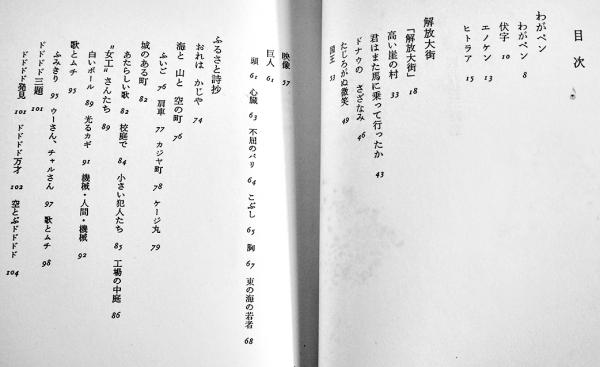 目次
わがペン
わがペン 8
伏字 10
エノケン 13
ヒトラア 15
解放大街
「解放大街」 18
高い崖の村 33
君はまた馬に乗って行ったか 43
ドナウの さざなみ 46
たじろがぬ微笑 49
国王 53
映像 57
巨人 61
頭 61 心臓 63 不屈のパリ 64 こぶし 65 胸 67 東の海の若者 68
ふるさと詩抄
おれは かじや 74
海と 山と 空の町 76
ふいご 76 肩車 77 カジヤ町 78 ケージ丸 79
城のある町 82
あたらしい歌 82 校庭で 84 小さい犯人たち 85 工場の中庭 86
“女工”さんたち 89
白いボール 89 光るカギ 91 機械・人間・機械 92
歌とムチ 95
ふみきり 95 ウーさん、チャルさん 97 歌とムチ 98
ドドドド三題 101
ドドドド発見 101 ドドドド万才 102 空とぶドドドド 104